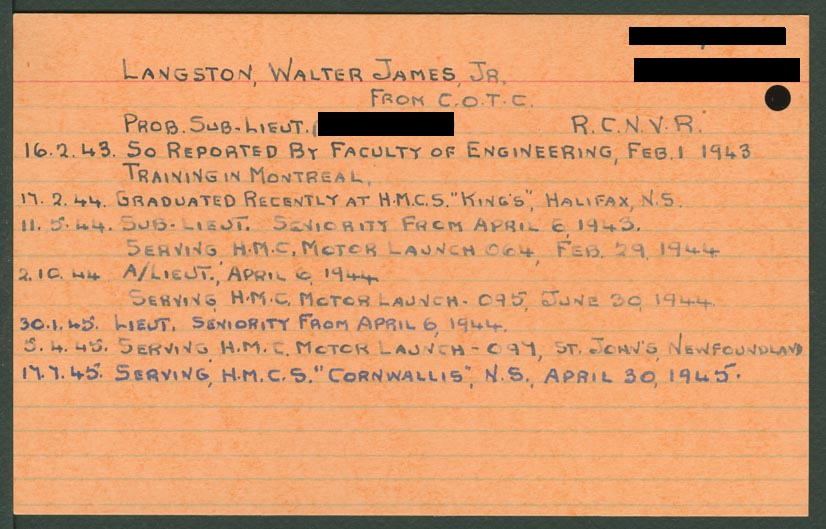 LANGSTON, WALTER JAMES, JR.
FROM C.O.T.C.
PROB. SUB-LIEUT. R.C.N.V.R.
16.2.43. SO REPORTED BY FACULTY OF ENGINEERING, FEB. 1 1943
TRAINING IN MONTREAL.
17.2.44. GRADUATED RECENTLY AT H.M.C.S. "KING'S", HALIFAX, N.S.
11.5.44. SUB-LIEUT. SENIORITY FROM APRIL 6, 1943.
SERVING, H.M.C. MOTOR LAUNCH 064, FEB. 29, 1944
2.10.44 A/LIEUT., APRIL 6, 1944
SERVING, H.M.C. MOTOR LAUNCH-095, JUNE 30, 1944
30.1.45. LIEUT. SENIORITY FROM APRIL 6, 1944.
5.4.45. SERVING, H.M.C. MOTOR LAUNCH-097, ST. JOHN'S, NEWFOUNDLAND
17.7.45. SERVING, H.M.C.S. "CORNWALLIS", N.S., APRIL 30, 1945.